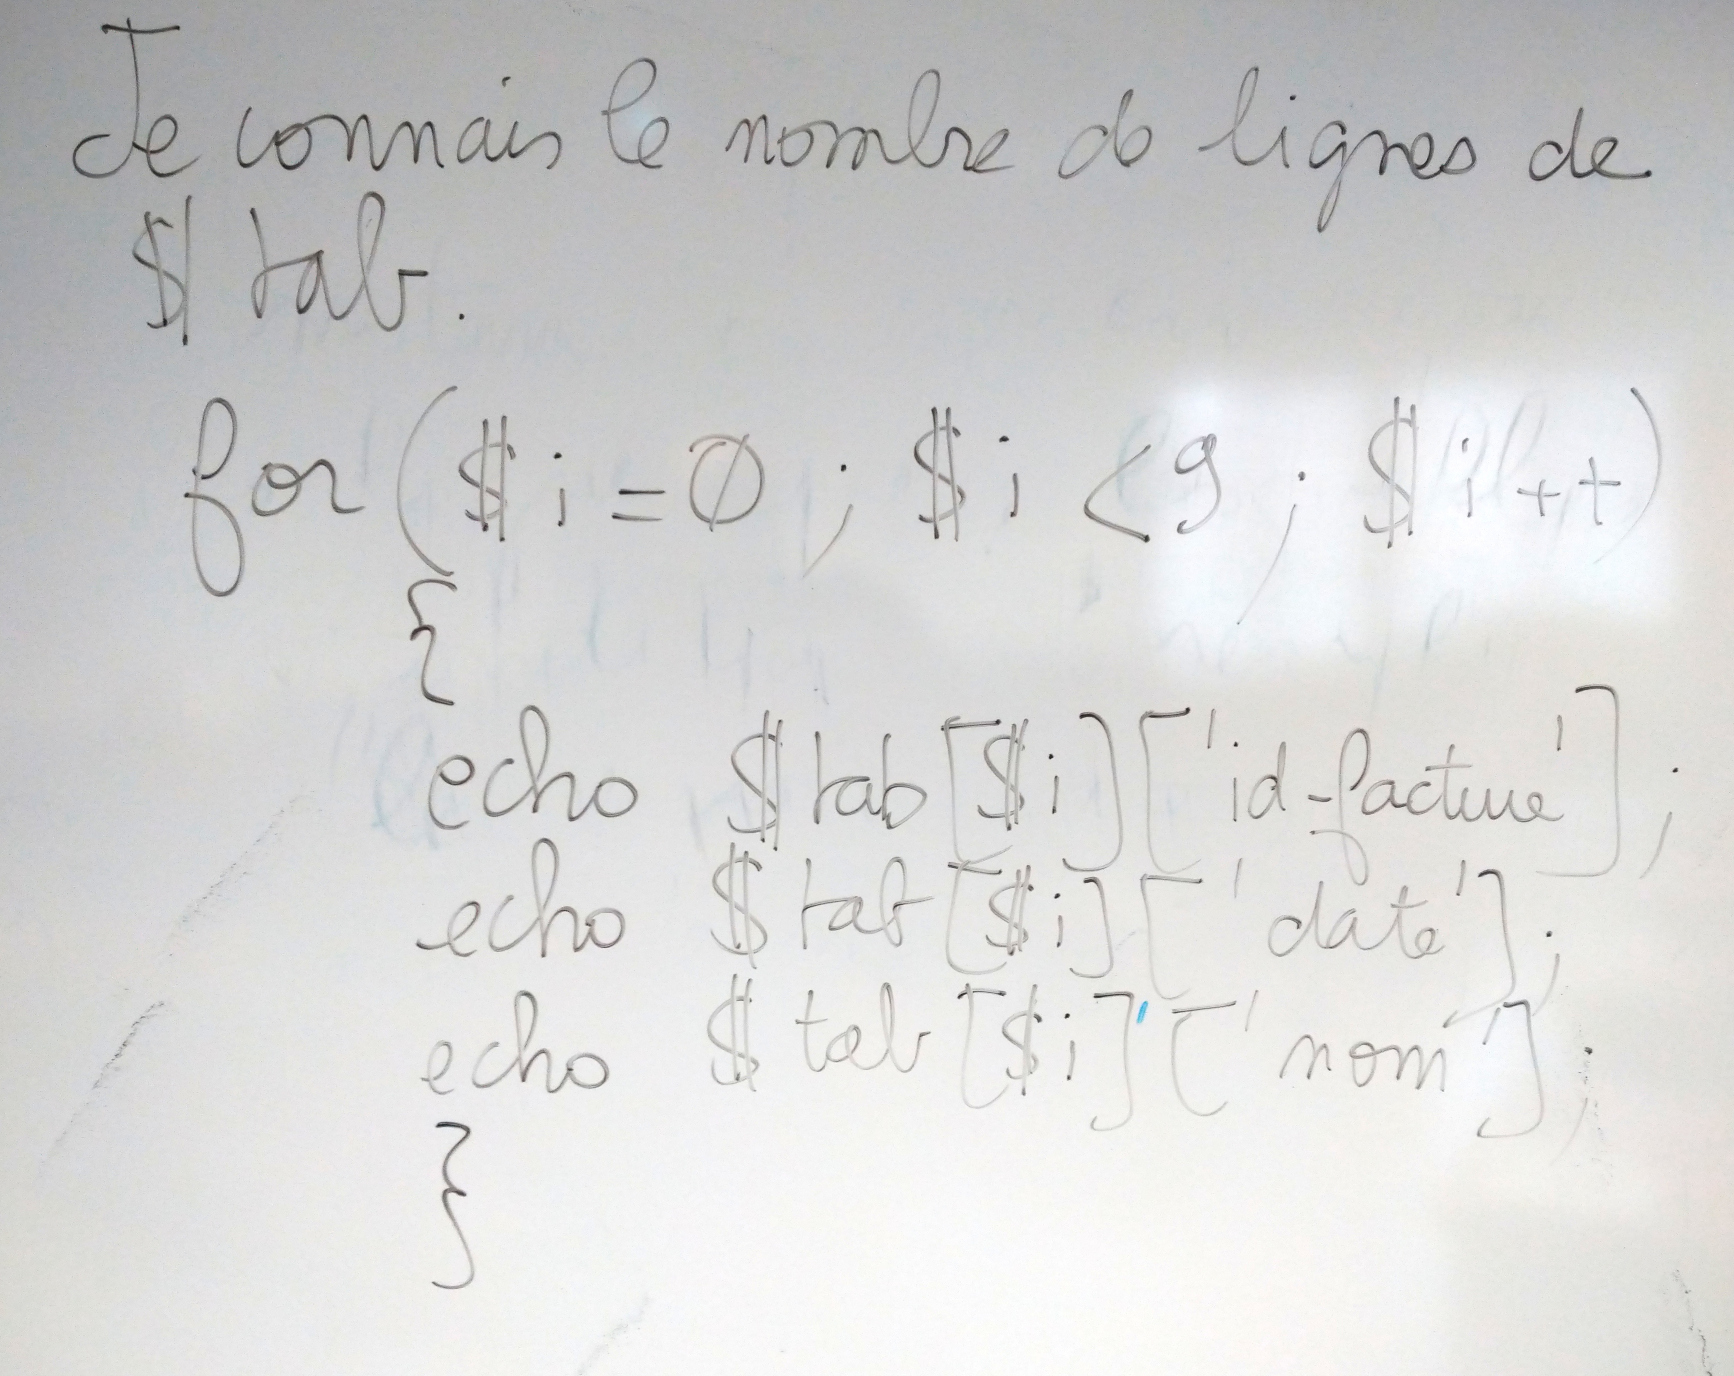 Je connais le nombre de lignes de
$tab.
for($i=0; $i<9; $i++)
{
echo $tab[$i]['id-facture'];
echo $tab[$i]['date'];
echo $tab[$i]['nom'];
}